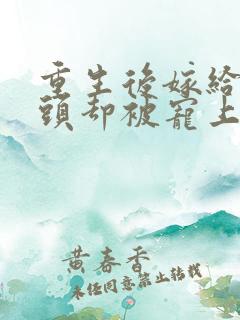 重生後嫁給
頭却被寵上
黄春香
未经同意禁止转载